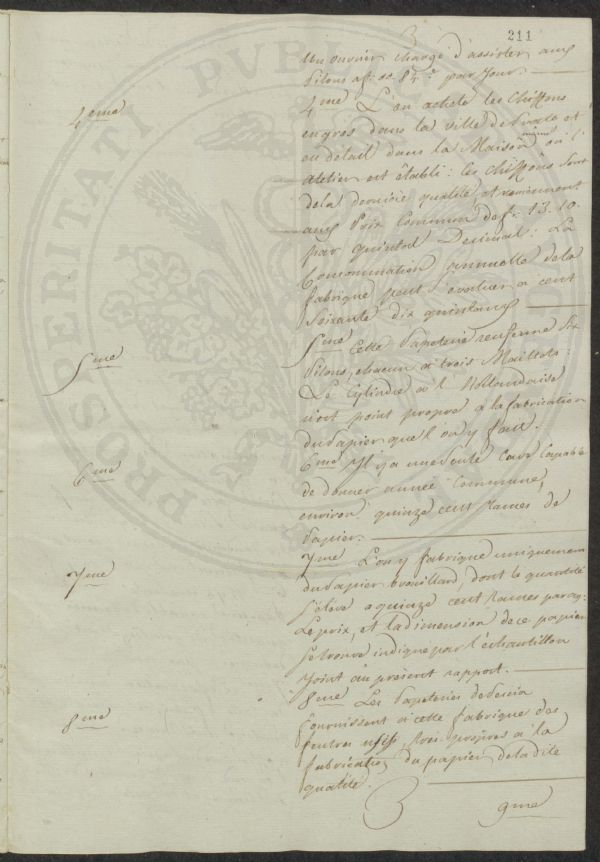 211
un ouvrier chargé d'assister aux
Pilons à fr. 0. 84 c. par Jour.
4eme
4me L'on achete les chiffons
en gros dans la ville de et
en détail dans la Maison même où l'
atelier est établi : les chiffons sont
de la derniére qualité, et reviennent
aux Prix Commun de fr. 13. 10.
par quintal Decimal : La
Consommation annuelle de la
fabrique peut s'evaluer a cent
soixante dix quintaux
5me
5me Cette Papeterie renferme six
Pilons, chacun a trois Maillets :
Le Cylindre a l'Hollandaise
n'est point propre à la fabrication
du Papier que l'on y fait.
6me
6me Il y a une seule Cuve Capable
de donner année Commune,
environ quinze cent Rames de
Papier.
7me
7me L'on y fabrique uniquement
du Papier brouillard, dont la quantité
s'eleve a quinze cent Rames par an
Le prix, et la dimension de ce papier
se trouve indiqué par l'échantillon
joint au présent rapport.
8me
8me Les Papeteries de
fournissent à cette fabrique des
feutres propres à la
fabrication du papier de la dite
qualité.
9me
PROSPERITATI PVBLI